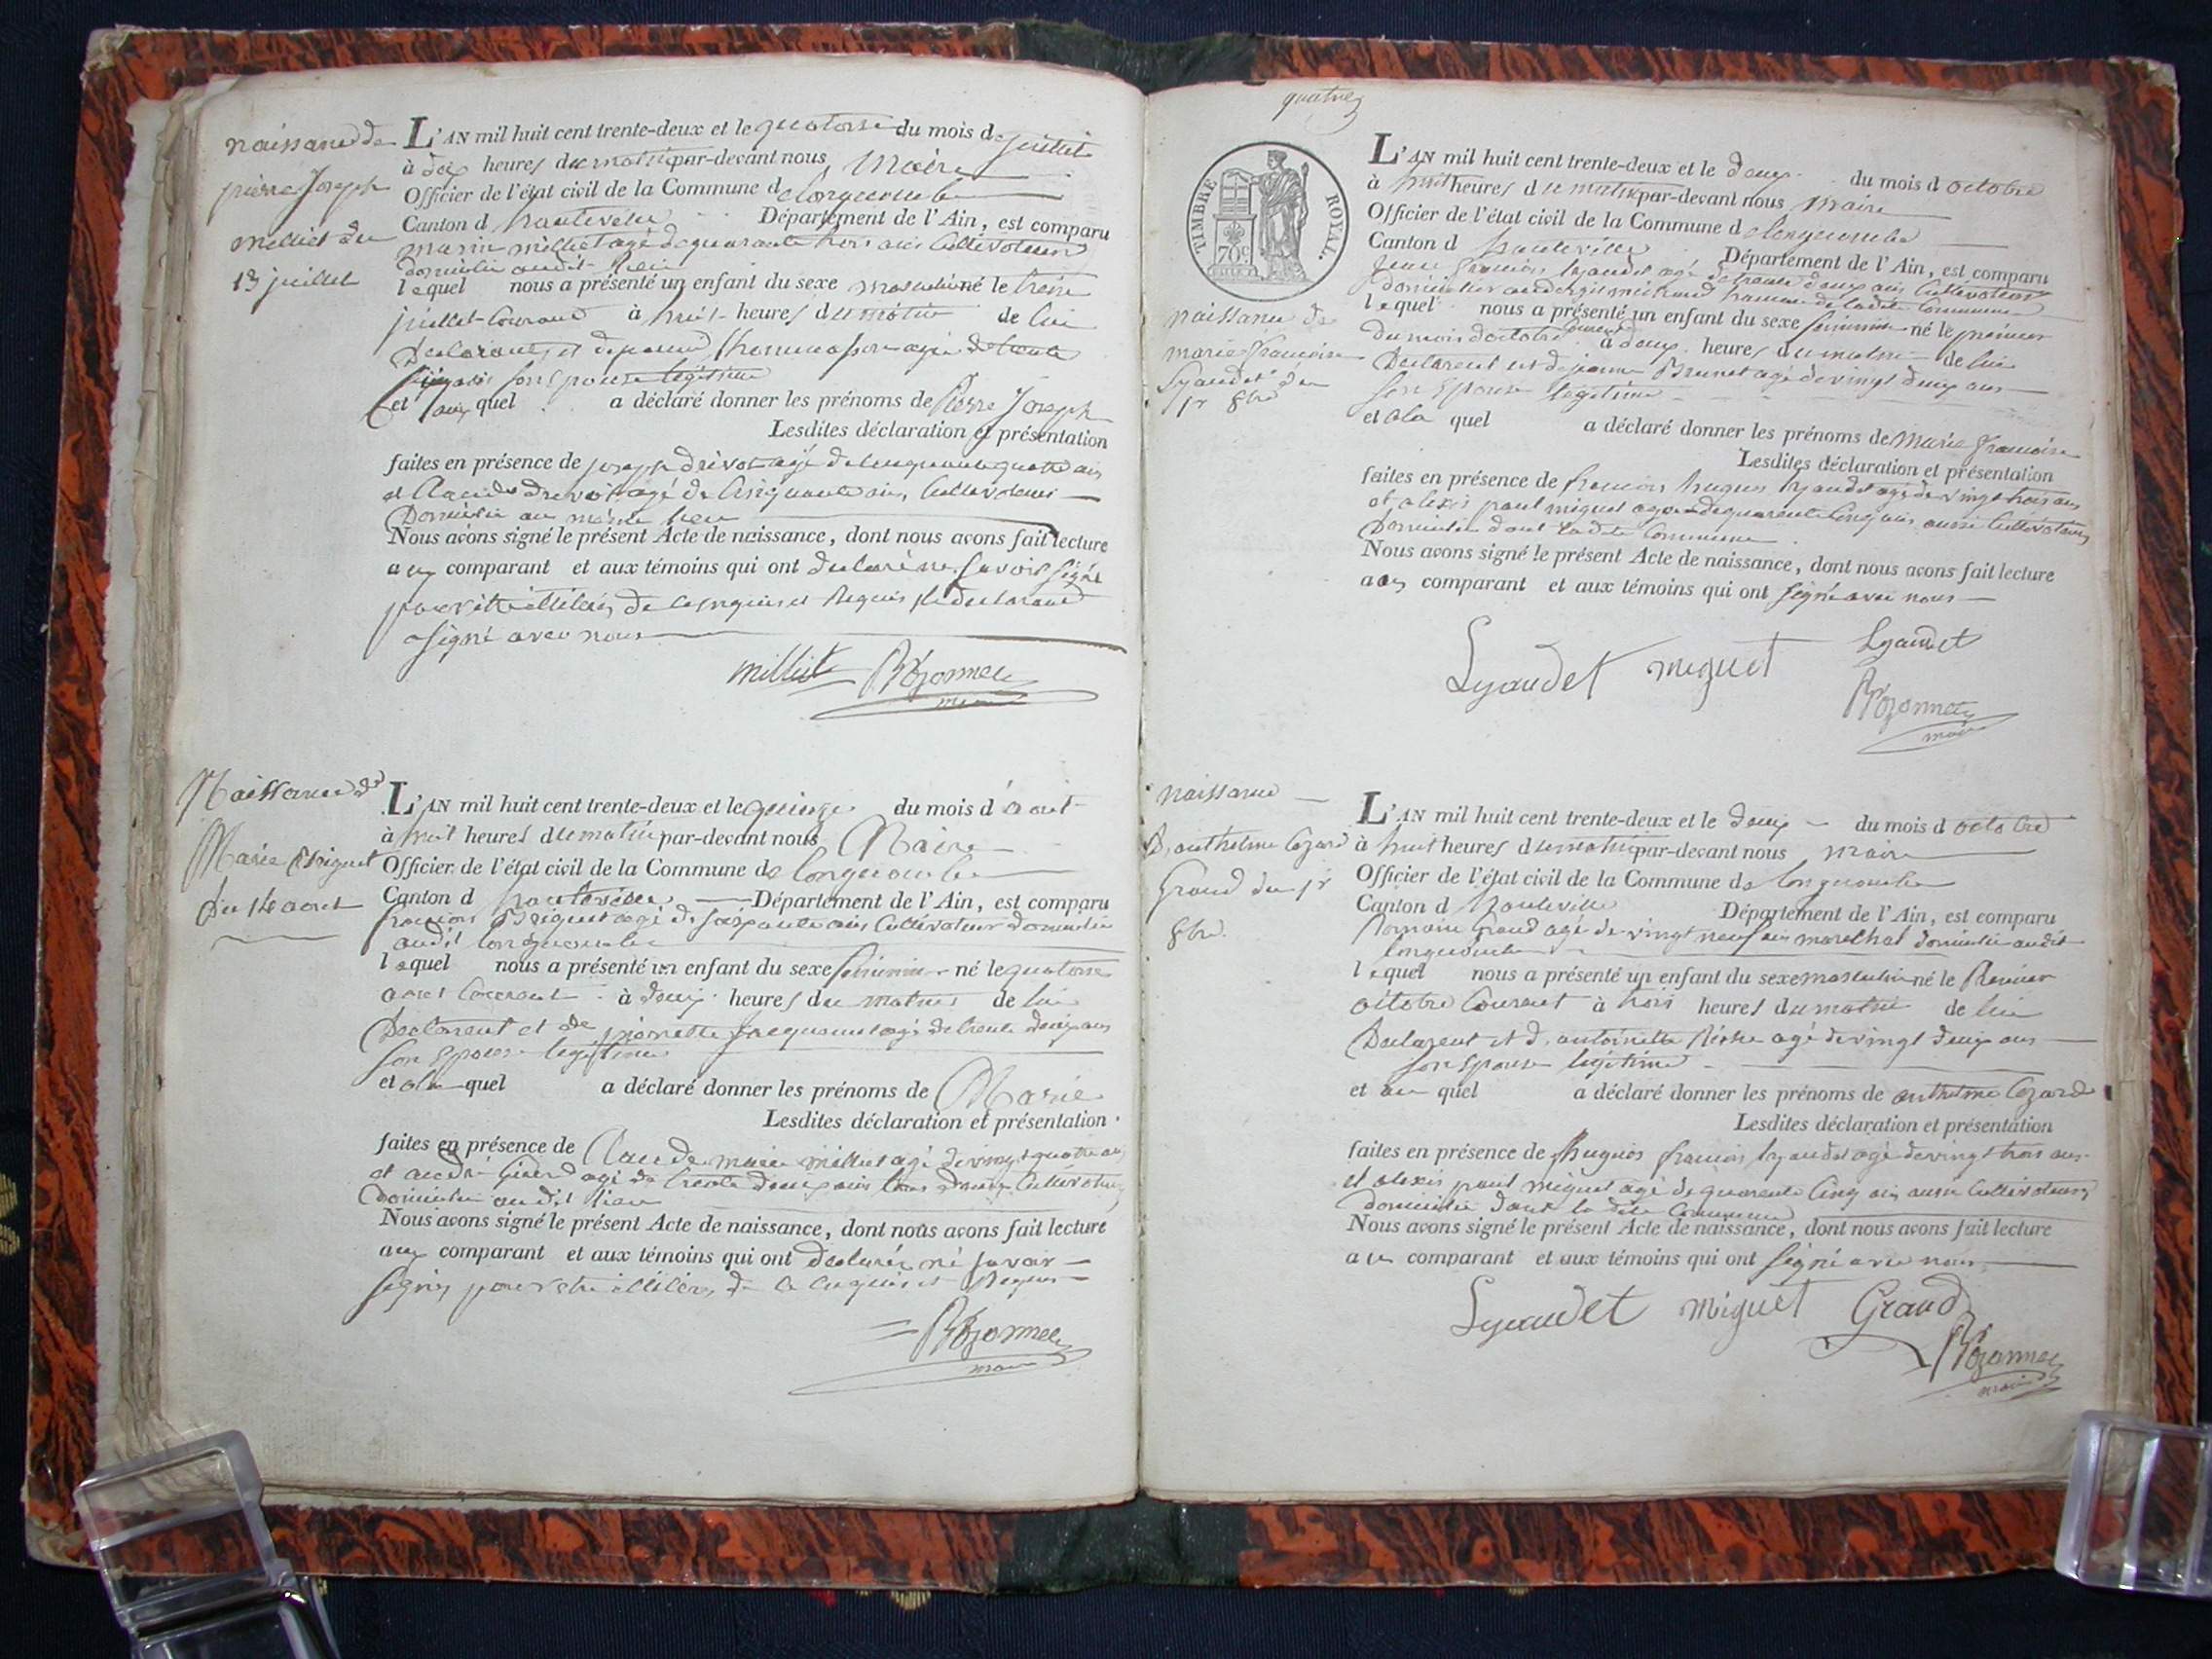 naissance de
pierre Joseph
milliet du
13 juillet
L'AN mil huit cent trente-deux et le quatorse du mois de juillet
à dix heures du matin par-devant nous Maire
Officier de l'état civil de la Commune de longecombe
Canton d hauteville Département de l'Ain, est comparu
marin milliet agé de quarante trois ans Cultivateur
domicilié audit lieu
lequel nous a présenté un enfant du sexe masculin né le treise
juillet Courant à huit heures du matin de lui
Declarant et
son epouse legitime
et auquel a déclaré donner les prénoms de Pierre Joseph
Lesdites déclaration et présentation
faites en présence de joseph drevot agé de cinquante quatre ans
et Claude drevot agé de Cinquante ans Cultivateurs
Domicilié au même lieu
Nous avons signé le présent Acte de naissance, dont nous avons fait lecture
au comparant et aux témoins qui ont declaré ne savoir signé
pour etre illiteré, de ce enquis et Requis le declarant
a signé avec nous
milliet
maire
Naissance de
Marie Briguet
du 14 aout
L'AN mil huit cent trente-deux et le quinze du mois d'aout
à huit heures du matin par-devant nous Maire
Officier de l'état civil de la Commune de longecombe
Canton d hauteville Département de l'Ain, est comparu
françois Briguet agé de soixante ans Cultivateur domicilié
audit longecombe
lequel nous a présenté un enfant du sexe feminin né le quatorse
aout Courant à deux heures du matin de lui
Declarant et de pierrette jacquemet agé de trente deux ans
son epouse legitime
et a la quel a déclaré donner les prénoms de Marie
Lesdites déclaration et présentation
faites en présence de Claude marie milliet agé de vingt quatre ans
et andré agé de trente deux ans tous deux Cultivateurs
Domicilié audit lieu
Nous avons signé le présent Acte de naissance, dont nous avons fait lecture
au comparant et aux témoins qui ont declaré ne savoir
signer pour etre illiteré, de ce enquis et Requis
maire
quatre
TIMBRE ROYAL
70c
naissance de
marie françoise
Lyaudet du
1r 8bre
L'AN mil huit cent trente-deux et le deux du mois d octobre
à huit heures du matin par-devant nous Maire
Officier de l'état civil de la Commune de longecombe
Canton d hauteville Département de l'Ain, est comparu
françois Lyaudet agé de trente deux ans Cultivateur
domicilié hameau de ladite Commune
lequel nous a présenté un enfant du sexe feminin né le premier
du mois d'octobre courant à deux heures du matin de lui
Declarant et de jeanne Brunet agé de vingt deux ans
son epouse legitime
et a la quel a déclaré donner les prénoms de Marie francoise
Lesdites déclaration et présentation
faites en présence de francois hugues lyaudet agé de vingt trois ans
et alexis paul miguet agé de quarente Cinq ans aussi Cultivateurs
Domicilié dans ladite Commune
Nous avons signé le présent Acte de naissance, dont nous avons fait lecture
au comparant et aux témoins qui ont signé avec nous
Lyaudet miguet Lyaudet
maire
naissance
D'anthelme Cezard
Grand du 1r
8bre
L'AN mil huit cent trente-deux et le deux du mois d octobre
à huit heures du matin par-devant nous maire
Officier de l'état civil de la Commune de longecombe
Canton d hauteville Département de l'Ain, est comparu
Romain Grand agé de vingt neuf ans marechal domicilié audit
longecombe
lequel nous a présenté un enfant du sexe masculin né le Premier
octobre Courant à trois heures du matin de lui
Declarant et d. antoinette agé de vingt deux ans
son epouse legitime
et au quel a déclaré donner les prénoms de anthelme Cezard
Lesdites déclaration et présentation
faites en présence de hugues francois lyaudet agé de vingt trois ans
et alexis paul miguet agé de quarente Cinq ans aussi Cultivateurs
domicilié dans la dite Commune
Nous avons signé le présent Acte de naissance, dont nous avons fait lecture
au comparant et aux témoins qui ont signé avec nous
Lyaudet miguet Grand
maire